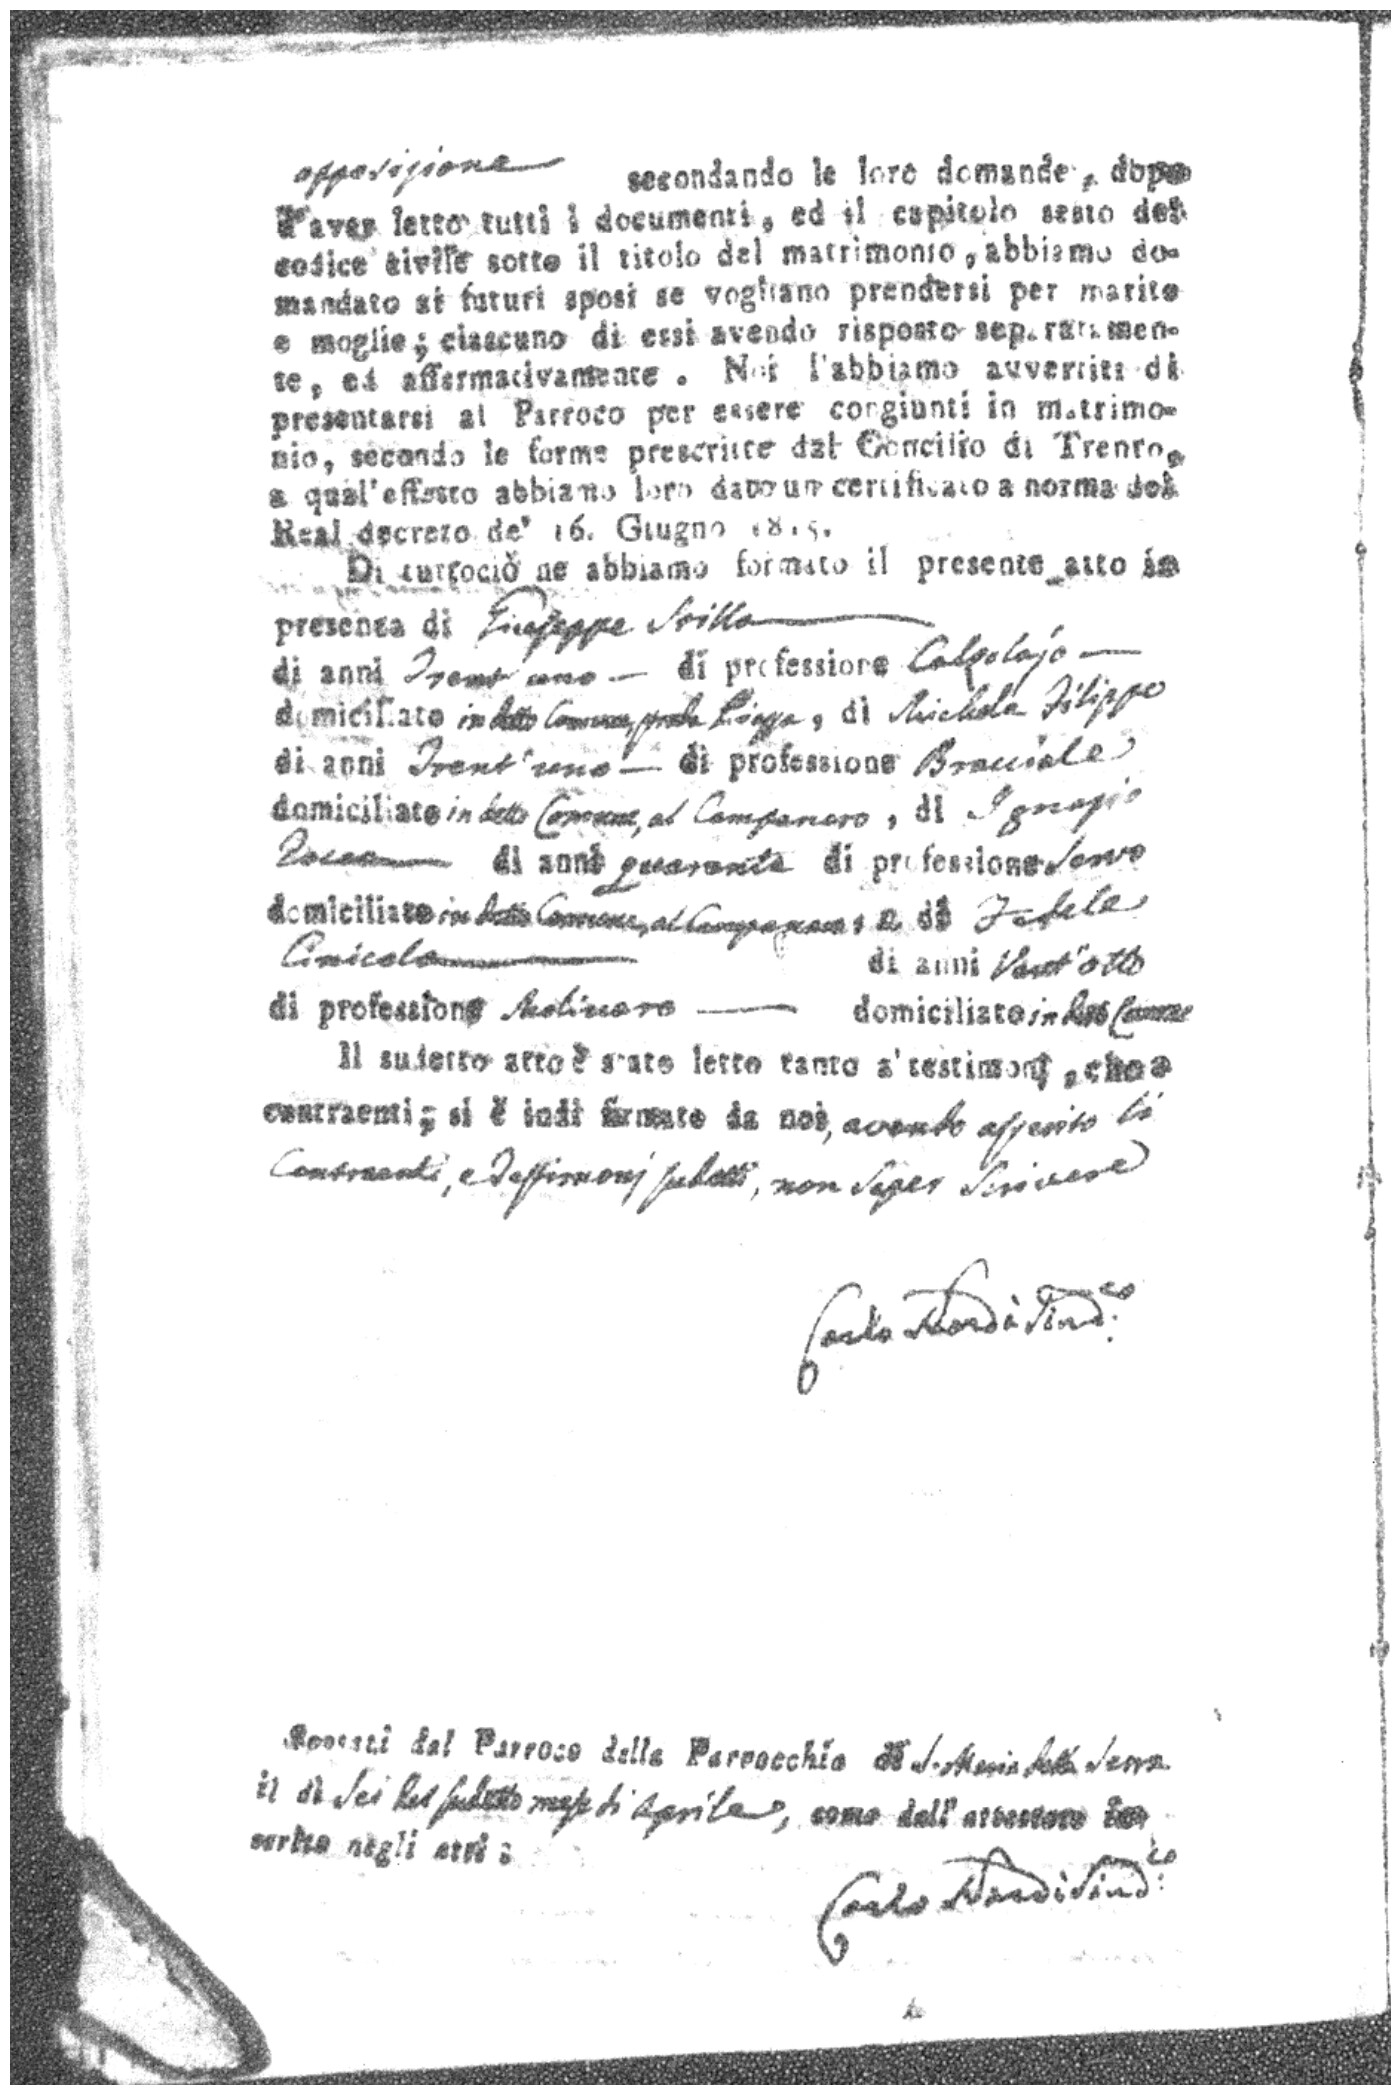 opposizione secondando le loro domande, dopo
d'aver letto tutti i documenti, ed il capitolo sesto del
codice civile sotto il titolo del matrimonio, abbiamo do-
mandato ai futuri sposi se vogliano prendersi per marito
e moglie; ciascuno di essi avendo risposto separatamen-
te, ed affermativamente. Noi l'abbiamo avvertiti di
presentarsi al Parroco per essere congiunti in matrimo-
nio, secondo le forme prescritte dal Concilio di Trento,
a qual'effetto abbiamo loro dato un certificato a norma del
Real decreto de' 16. Giugno 1815.
Di tuttociò ne abbiamo formato il presente atto in
presenza di Giuseppe
di anni Trent'uno di professione Calzolajo
domiciliato in detto Comune, strada Piazza, di Michele Filippo
di anni Trent'uno di professione Bracciale
domiciliato in detto Comune, al Campanaro, di Ignazio
di anni quaranta di professione Servo
domiciliato in detto Comune, al Campanaro, e di Fedele
Cinicola di anni Vent'otto
di professione Molinaro domiciliato in detto Comune
Il sudetto atto è stato letto tanto a' testimonj, che a
contraenti; si è indi firmato da noi, avendo asserito li
Contraenti, e Testimonj sudetti, non saper scrivere
Carlo Nardi Sind.co
Sposati dal Parroco della Parrocchia di S. Maria della Serra
il dì Sei del sudetto mese di Aprile, come dall'attestato in-
serito negli atti:
Carlo Nardi Sind.co